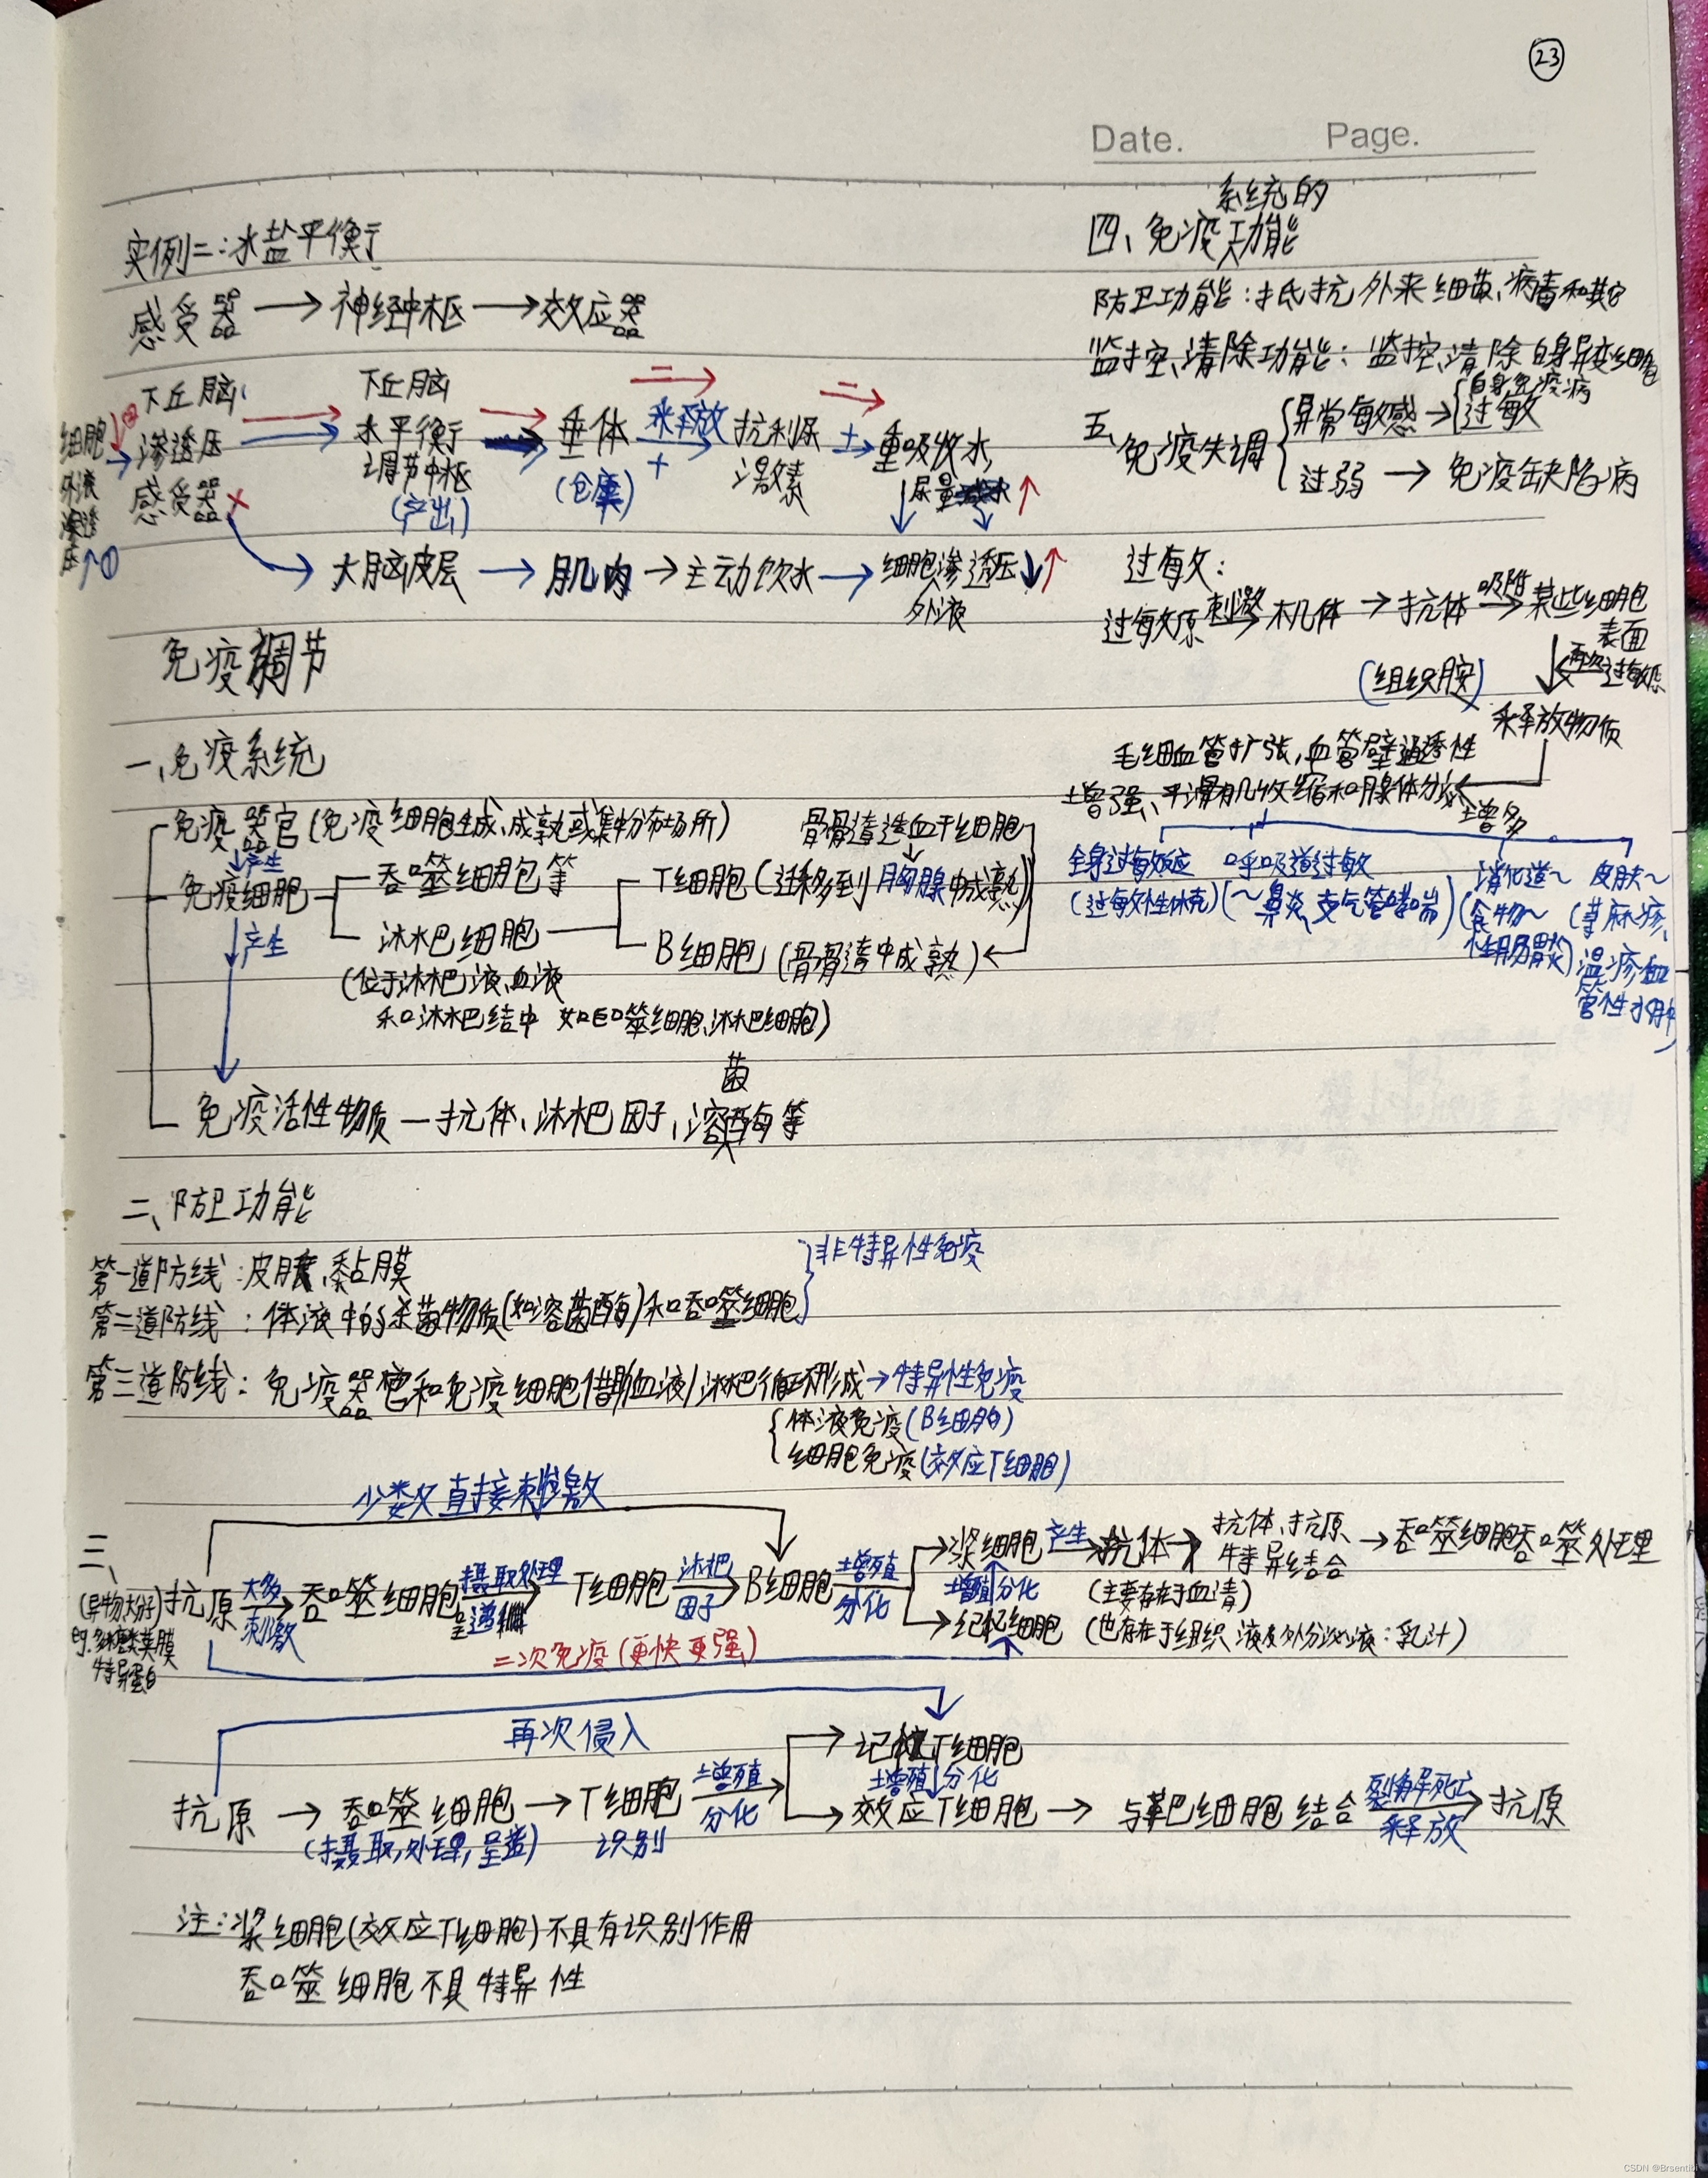 23
Date. Page.
实例二:水盐平衡
感受器→神经中枢→效应器
下丘脑
渗透压
感受器
细胞
外液
渗透
压↑①
下丘脑
水平衡
调节中枢
(产出)
垂体
(仓库)
释放
+
抗利尿
激素
+
重吸收水,
尿量
大脑皮层→肌肉→主动饮水→细胞渗透压↓↑
外液
免疫调节
一、免疫系统
免疫器官(免疫细胞生成、成熟或集中分布场所)
↓产生
免疫细胞
吞噬细胞等
淋巴细胞
(位于淋巴液、血液
和淋巴结中 如:吞噬细胞、淋巴细胞)
骨骨髓造血干细胞
T细胞(迁移到胸腺中成熟)
B细胞(骨骨髓中成熟)
↓产生
免疫活性物质—抗体、淋巴因子、溶酶等
菌
二、防卫功能
第一道防线:皮肤、黏膜
第二道防线:体液中的杀菌物质(如溶菌酶)和吞噬细胞
}非特异性免疫
第三道防线:免疫器官和免疫细胞借助血液/淋巴循环形成→特异性免疫
体液免疫(B细胞)
细胞免疫(效应T细胞)
三、
少数直接刺激
(异物、大分子)
eg.多糖类荚膜
特异蛋白
抗原 大多 刺激 → 吞噬细胞 摄取处理 呈递 → T细胞 淋巴 因子 → B细胞 增殖 分化
浆细胞 产生 → 抗体 → 抗体、抗原 特异结合 → 吞噬细胞吞噬处理
增殖 分化
(主要存在于血清)
记忆细胞 (也存在于组织液及外分泌液:乳汁)
二次免疫(更快更强)
再次侵入
记忆T细胞
增殖↓分化
抗原→吞噬细胞→T细胞 增殖 分化 → 效应T细胞→与靶细胞结合 裂解死亡 释放 → 抗原
(摄取,处理,呈递) 识别
注:浆细胞(效应T细胞)不具有识别作用
吞噬细胞不具特异性
系统的
四、免疫功能
防卫功能:抵抗外来细菌、病毒和其它
监控、清除功能:监控、清除自身异变细胞
五、免疫失调
异常敏感→
自身免疫病
过敏
过弱→免疫缺陷病
过敏:
过敏原 刺激 → 机体 → 抗体 吸附 → 某些细胞
表面
再次过敏原
(组织胺)
释放物质
毛细血管扩张,血管壁通透性
增强、平滑肌收缩和腺体分泌
增多
全身过敏反应
(过敏性休克)
呼吸道过敏
(~鼻炎、支气管哮喘)
消化道~
(食物~
性肠胃炎)
皮肤~
(荨麻疹、
湿疹、血
管性水肿)
CSDN @Brsentibi